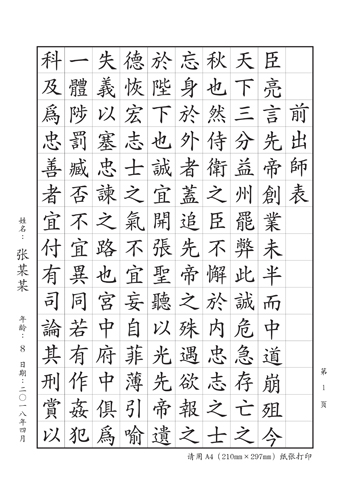 第1页
前出師表
臣亮言先帝創業未半而中道崩殂今
天下三分益州罷弊此誠危急存亡之
秋也然侍衛之臣不懈於內忠志之士
忘身於外者蓋追先帝之殊遇欲報之
於陛下也誠宜開張聖聽以光先帝遺
德恢宏志士之氣不宜妄自菲薄引喻
失義以塞忠諫之路也宮中府中俱爲
一體陟罰臧否不宜異同若有作姦犯
科及爲忠善者宜付有司論其刑賞以
姓名：张某某 年龄：8 日期：二〇一八年四月
请用A4（210mm×297mm）纸张打印